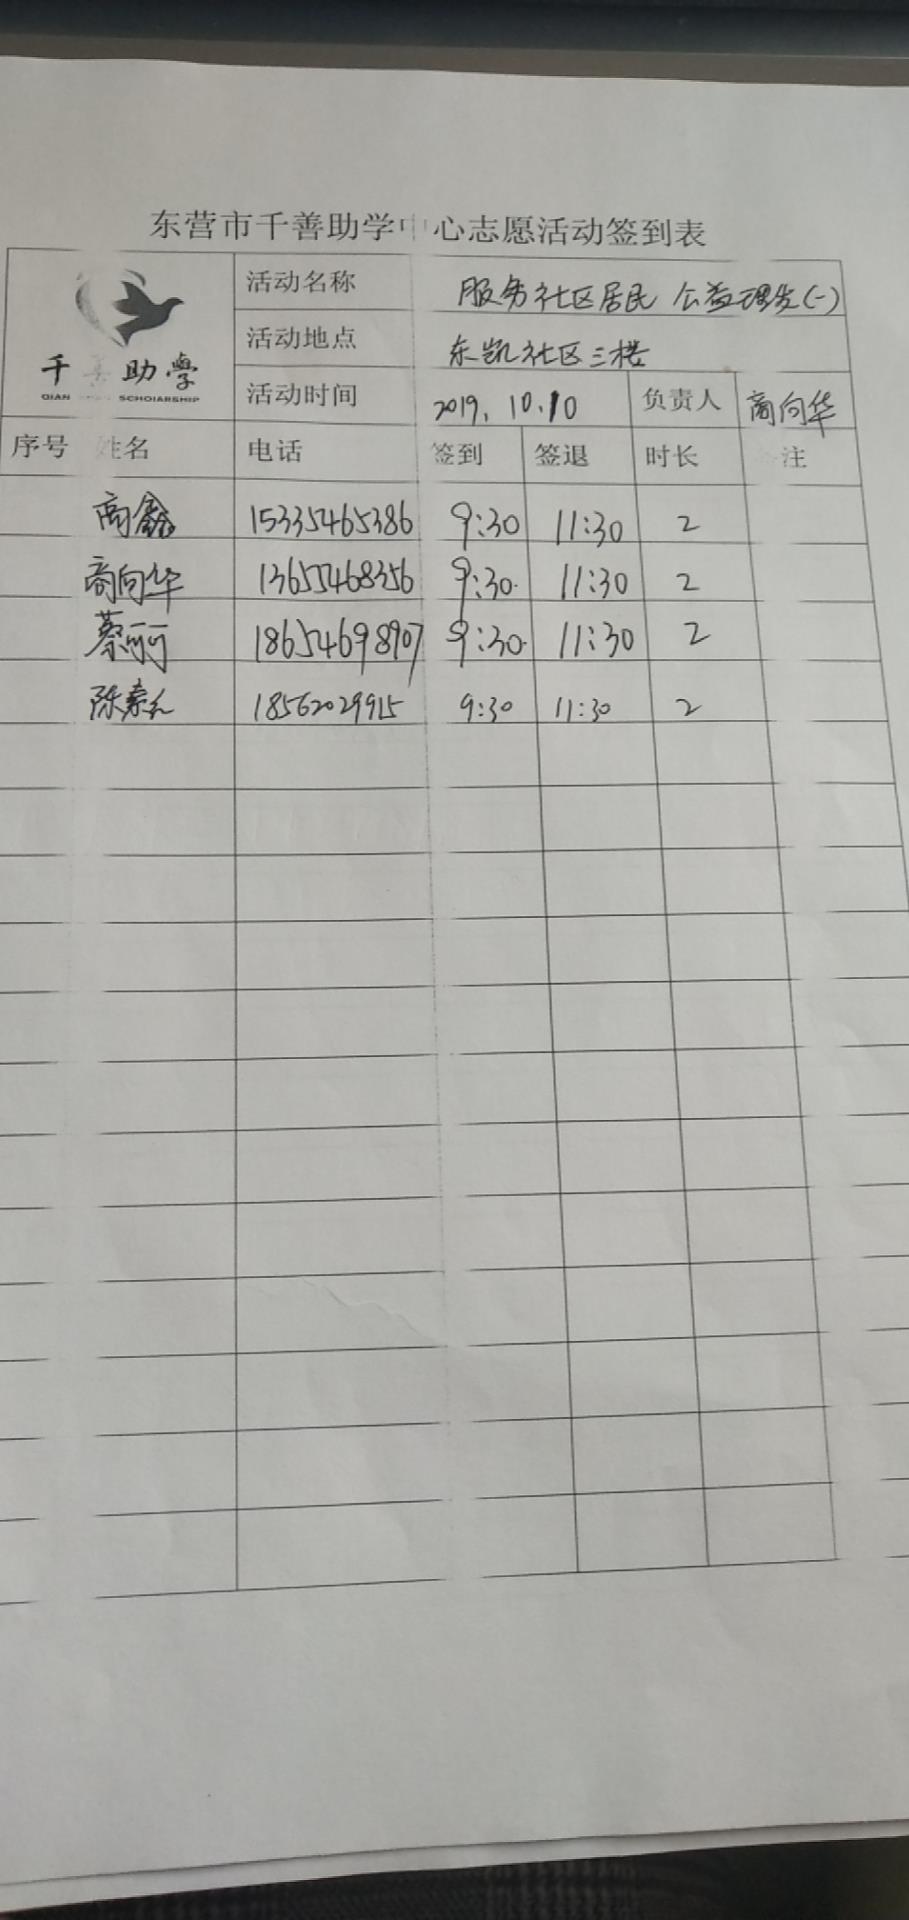 东营市千善助学中心志愿活动签到表
千善助學
QIAN SCHOLARSHIP
活动名称 服务社区居民 公益理发(一)
活动地点 东凯社区三楼
活动时间 2019.10.10 负责人 商向华
序号 姓名 电话 签到 签退 时长 备注
商鑫 15335465386 9:30 11:30 2
商向华 13655468356 9:30 11:30 2
蔡丽 18654698907 9:30 11:30 2
陈 18562029915 9:30 11:30 2